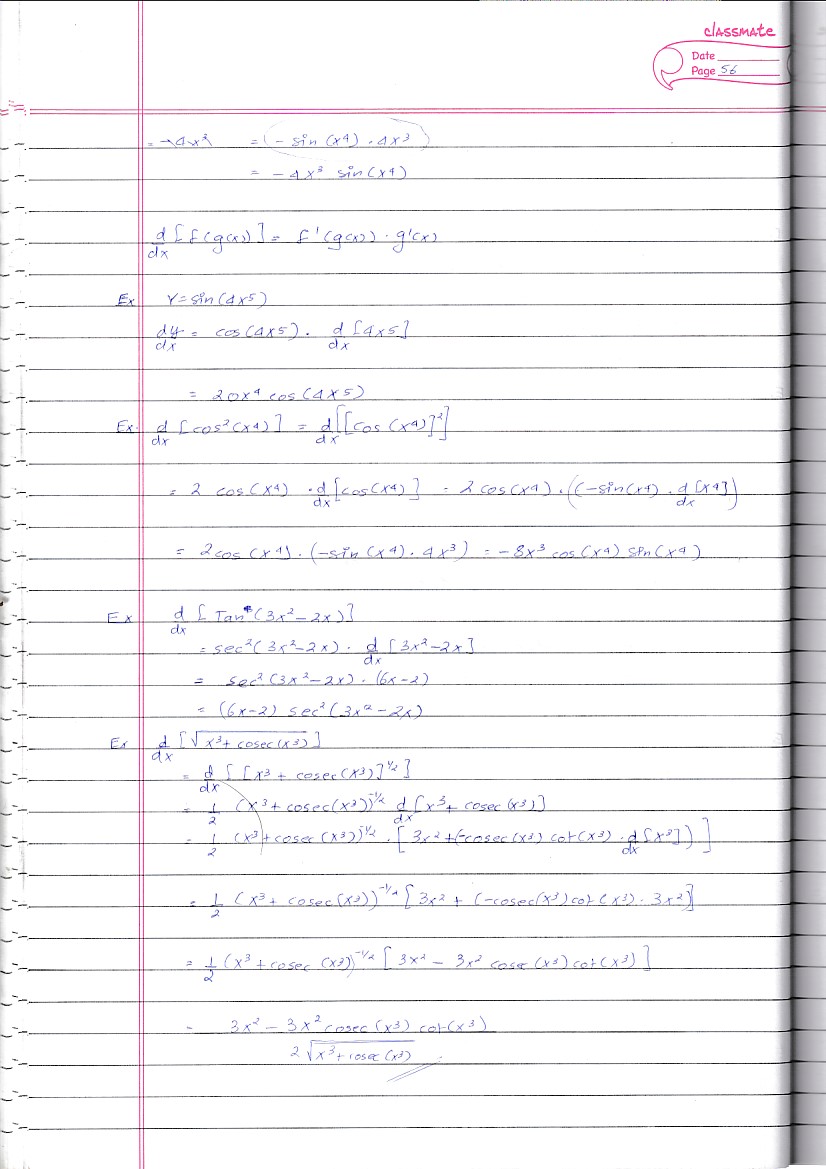 classmate
Date
Page 56
= -4x² = (- sin (x⁴) . 4x³)
= - 4x³ sin(x⁴)
d/dx [f(g(x))] = f'(g(x)) . g'(x)
Ex Y = sin(4x⁵)
dy/dx = cos(4x5) . d/dx [4x5]
= 20x⁴ cos(4x5)
Ex. d/dx [cos²(x⁴)] = d/dx [[cos (x⁴)]²]
= 2 cos(x⁴) . d/dx [cos(x⁴)] = 2 cos(x⁴) . ((-sin(x⁴) . d/dx [x⁴])
= 2cos (x⁴) . (-sin (x⁴) . 4x³) = -8x³ cos(x⁴) sin(x⁴)
Ex d/dx [Tan (3x² - 2x)]
= sec²(3x² - 2x) . d/dx [3x² - 2x]
= sec² (3x² - 2x) . (6x - 2)
= (6x-2) sec² (3x² - 2x)
Ex d/dx [√(x³ + cosec(x³))]
= d/dx [[x³ + cosec(x³)]^1/2]
= 1/2 (x³ + cosec(x³))^-1/2 d/dx [x³ + cosec(x³)]
= 1/2 (x³ + cosec(x³))^-1/2 . [3x² + (-cosec(x³) cot(x³) . d/dx [x³])]
= 1/2 (x³ + cosec(x³))^-1/2 [3x² + (-cosec(x³) cot(x³) . 3x²]
= 1/2 (x³ + cosec (x³))^-1/2 [3x² - 3x² cosec (x³) cot(x³)]
= 3x² - 3x² cosec (x³) cot(x³)
2√(x³ + cosec(x³))